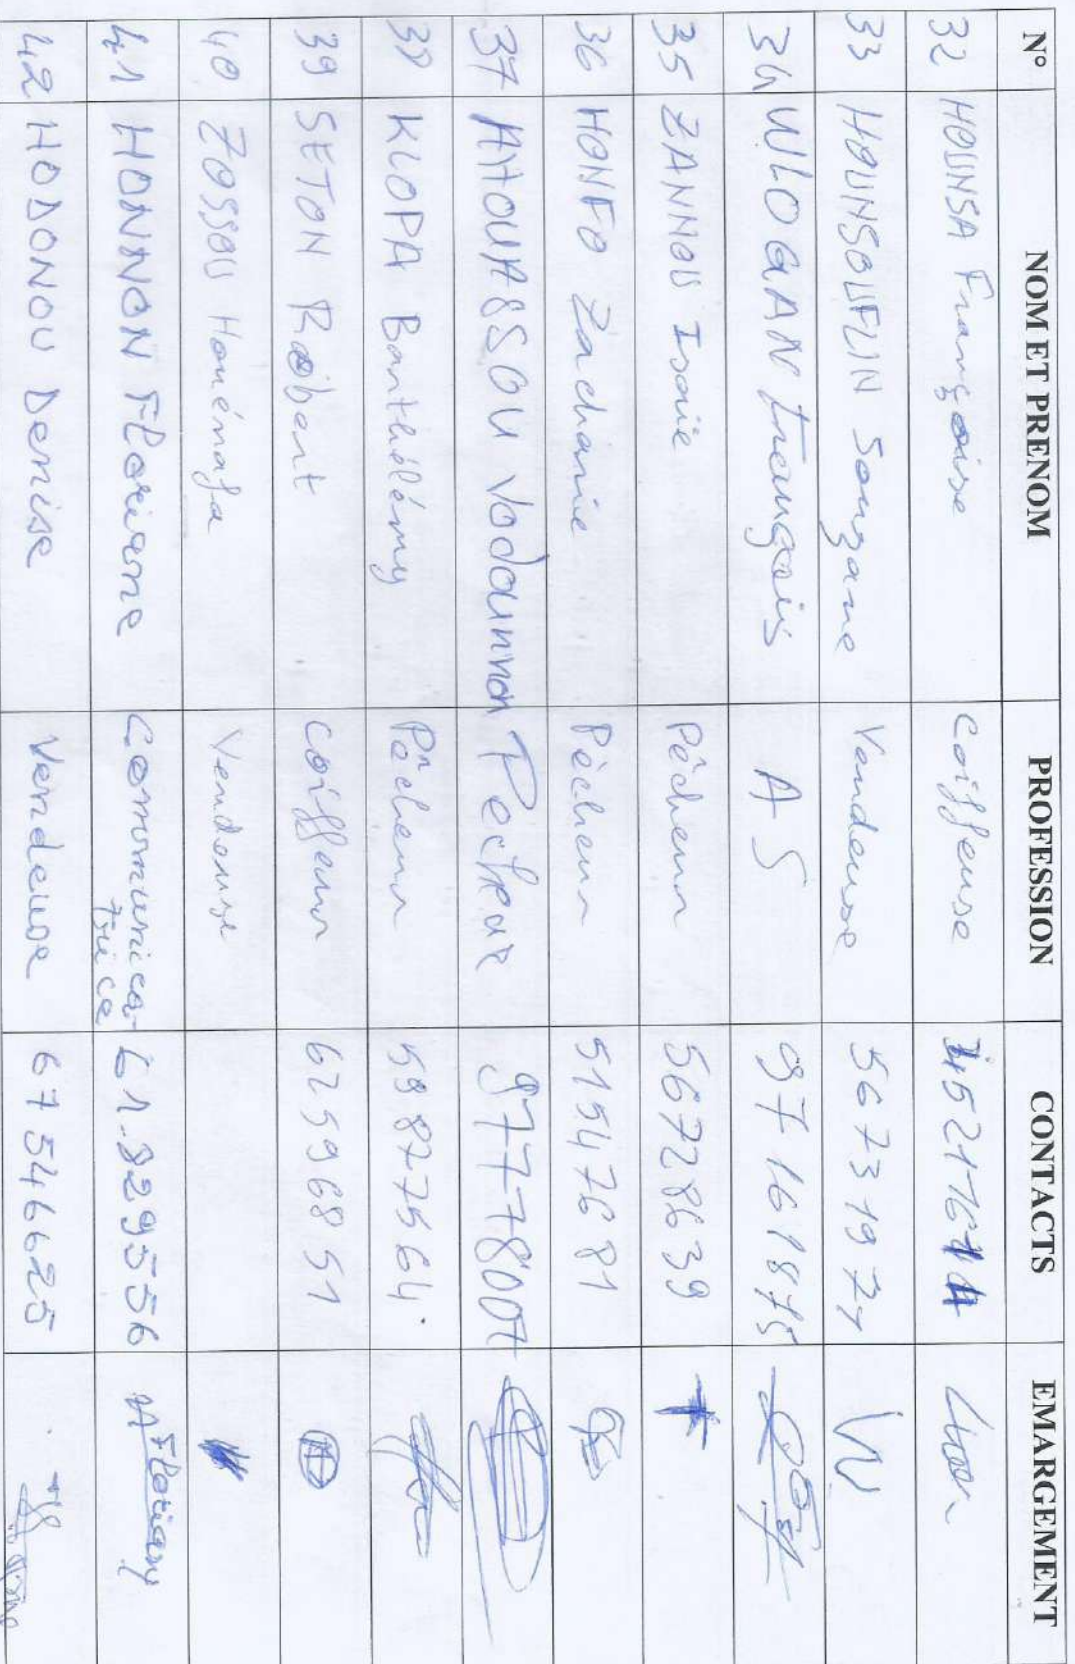 N° NOM ET PRENOM PROFESSION CONTACTS EMARGEMENT
32 HOUNSA Françoise Coiffeuse
33 HOUNSOUFLIN Souzane Vendeuse 56731977
34 WLOGAN François A S 97161875
35 ZANNOU Isaïe Pêcheur 56728639
36 HONFO Zacharie Pêcheur 51547681
37 AHOUASSOU Vodounnon Pecheur 97778007
38 KLOPA Barthélémy Pêcheur 59877564.
39 SETON Robert Coiffeur 62596851
40 ZOSSOU Houénafa Vendeuse
41 HONNON Floriane Communica- 61.829556 H Floriane
trice
42 HODONOU Denise Vendeuse 67546625